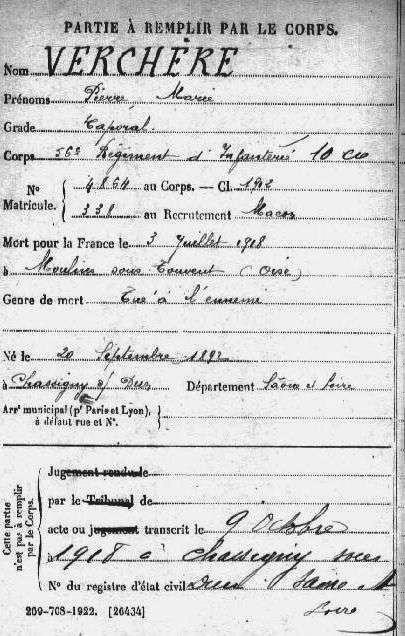 PARTIE À REMPLIR PAR LE CORPS.
Nom VERCHÈRE
Prénoms Pierre Marie
Grade Caporal
Corps 56e Régiment d'Infanterie 10 Cie
N° Matricule. 4864 au Corps. — Cl. 1912
338 au Recrutement Macon
Mort pour la France le 3 Juillet 1918
à Moulin sous Touvent (Oise)
Genre de mort Tué à l'ennemi
Né le 20 Septembre 1892
à Chassigny s/ Dun Département Saône et Loire
Arrt municipal (pr Paris et Lyon), à défaut rue et N°.
Cette partie n'est pas à remplir par le Corps.
Jugement rendu le
par le Tribunal de
acte ou jugement transcrit le 9 Octobre
à 1918 à Chassigny sous
N° du registre d'état civil Dun Saone et
Loire
269-708-1922. [26434]